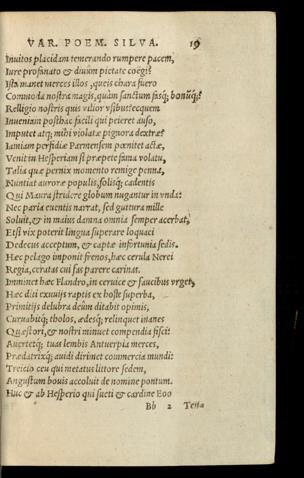 VAR. POEM. SILVA. 19
Inuitos placidam temerando rumpere pacem,
Iure profanato & diuûm pietate coëgi?
Istà manet merces illos, queis chara fuero
Commoda nostra magis, quàm sanctum fasq; bonũq;?
Relligio nostris quis vilior vsibus? ecquem
Inueniam posthac facili qui peieret auso,
Imputet atq; mihi violatæ pignora dextræ?
Iamiam perfidiæ Parnensem pœnitet actæ,
Venit in Hesperiam si præpete fama volatu,
Talia quæ pernix momento remige penna,
Nuntiat auroræ populis, solisq; cadentis
Qui Maura stridere globum nugantur in vnda:
Nec paria euentis narrat, sed guttura mille
Soluit, & in maius damna omnia semper acerbat,
Etsi vix poterit lingua superare loquaci
Dedecus acceptum, & captæ infortunia sedis.
Hæc pelago imponit frenos, hæc cerula Nerei
Regia, ceratas cui fas parere carinas.
Imminet hæc Flandro, in ceruice & faucibus vrget,
Hæc diti exuuijs raptis ex hoste superba,
Primitijs delubra deûm ditabit opimis,
Curuabitq; tholos, ædesq; relinquet inanes
Quæstori, & nostri minuet compendia fisci:
Auertetq; tuas lembis Antuerpia merces,
Prædatrixq; auidi dirimet commercia mundi:
Treicio ceu qui metatus littore sedem,
Angustum bouis accoluit de nomine pontum.
Huc & ab Hesperio qui sueti & cardine Eoo
Bb 2 Testa